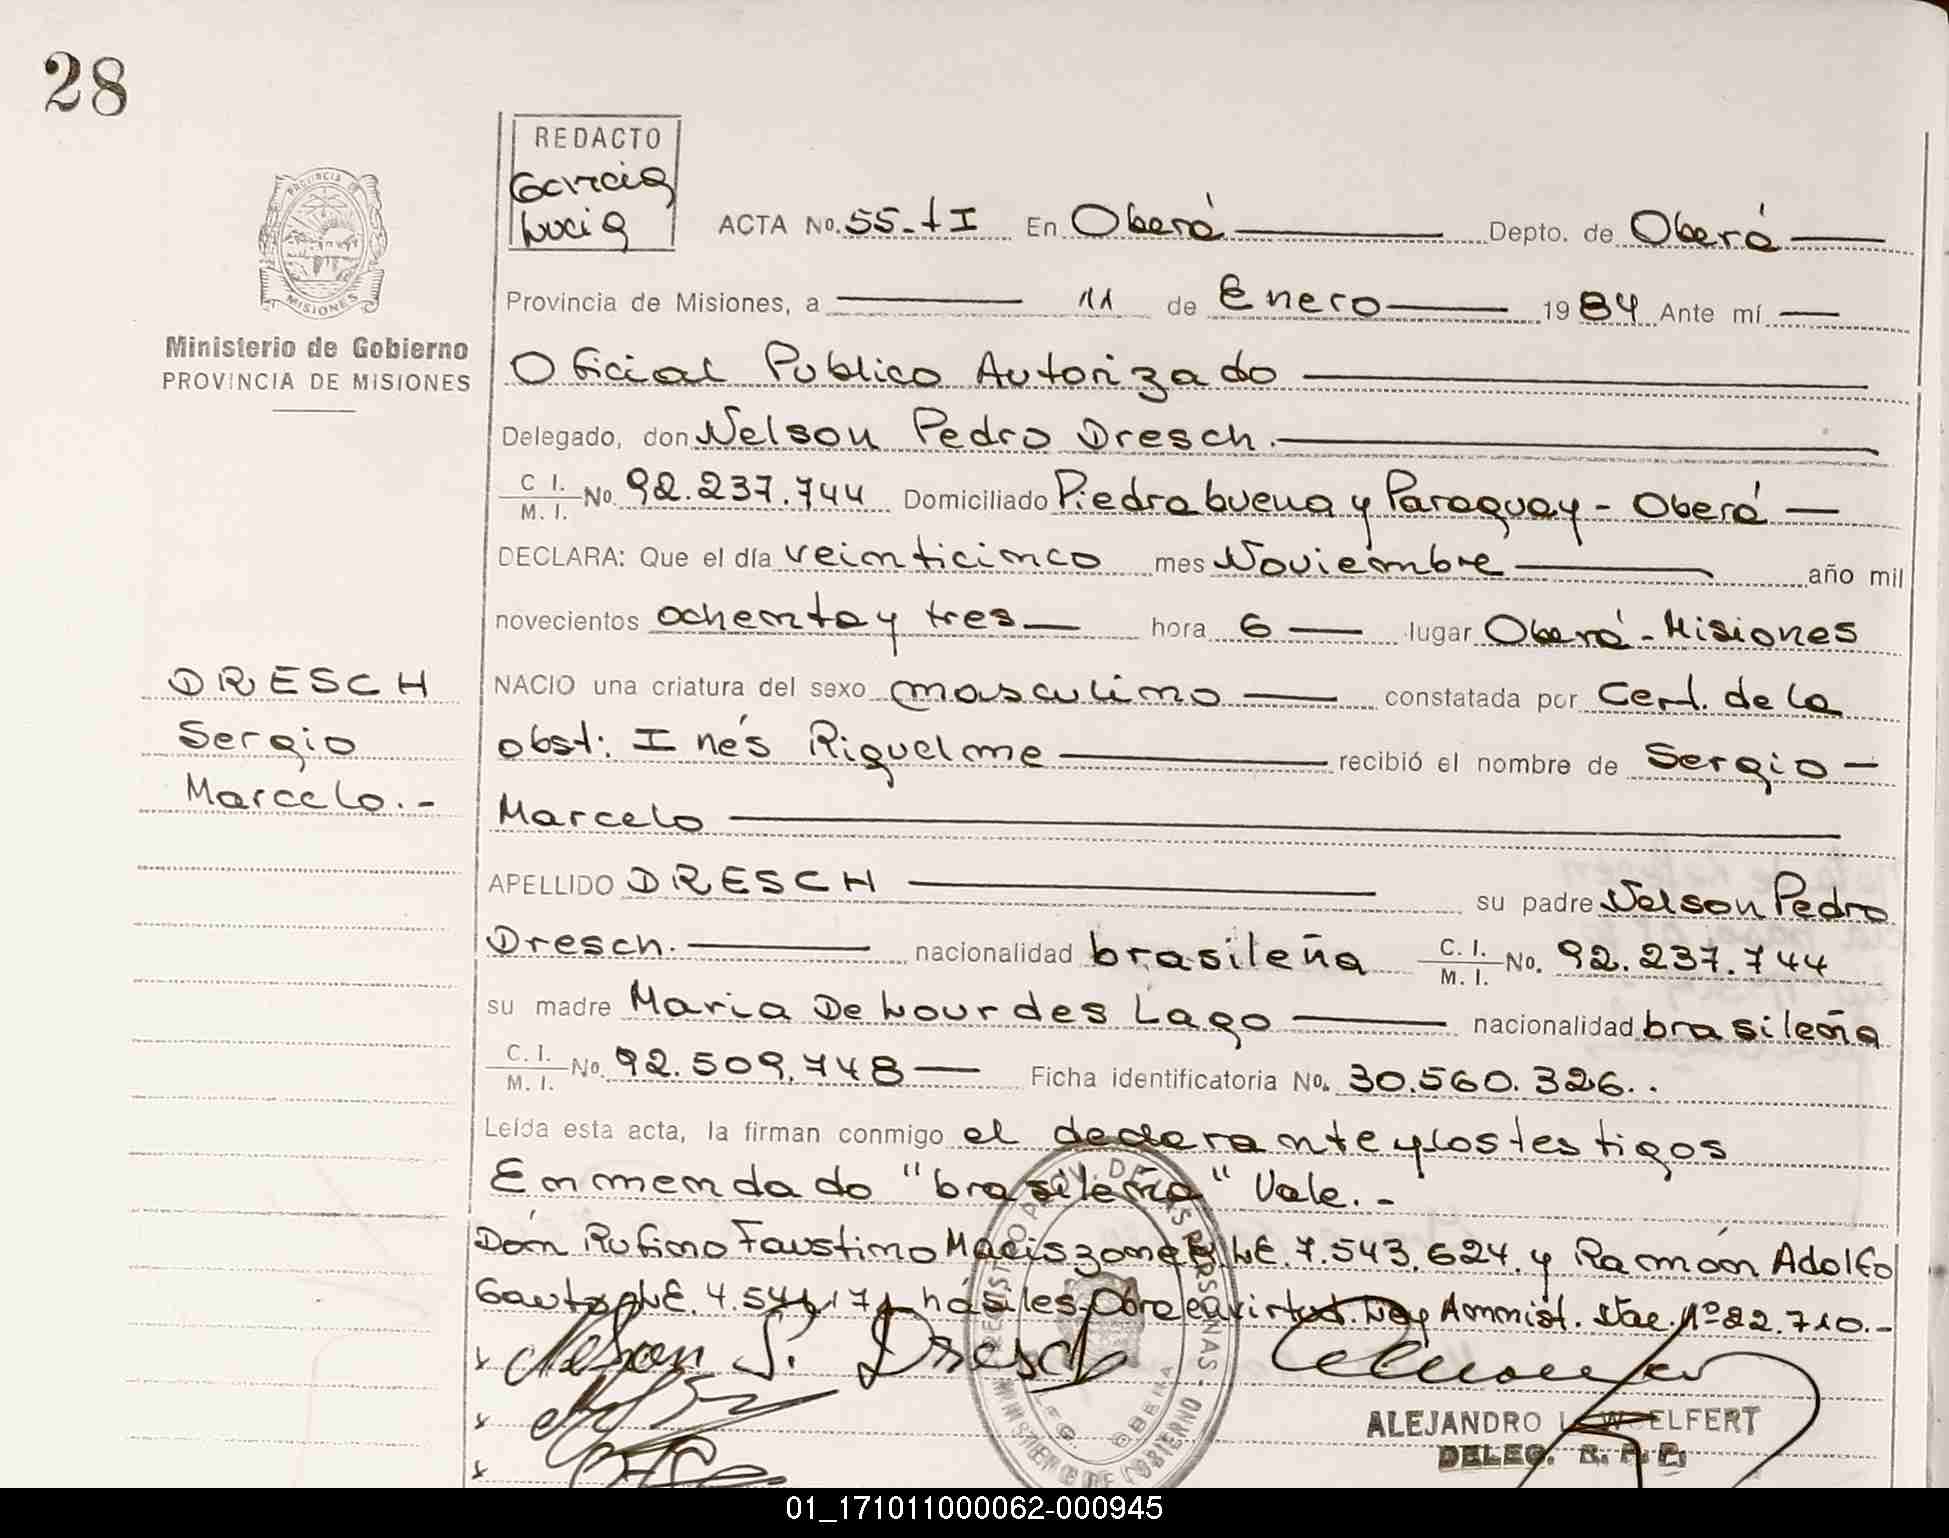 28
REDACTO
Garcia
Lucia
PROVINCIA DE
MISIONES
Ministerio de Gobierno
PROVINCIA DE MISIONES
ACTA No. 55-tI En Oberá Depto. de Oberá
Provincia de Misiones, a 11 de Enero 1984 Ante mí
Oficial Publico Autorizado
Delegado, don Nelson Pedro Dresch.
C I. / M. I. No. 92.237.744 Domiciliado Piedrabuena y Paraguay - Oberá
DECLARA: Que el día veinticinco mes Noviembre año mil
novecientos ochenta y tres hora 6 lugar Oberá - Misiones
NACIO una criatura del sexo masculino constatada por Cert. de la
obst: Inés Riquelme recibió el nombre de Sergio
Marcelo
DRESCH
Sergio
Marcelo.-
APELLIDO DRESCH su padre Nelson Pedro
Dresch. nacionalidad brasileña C. I. / M. I. No. 92.237.744
su madre Maria De Lourdes Lago nacionalidad brasileña
C. I. / M. I. No. 92.509.748 Ficha identificatoria No. 30.560.326..
Leída esta acta, la firman conmigo el declarante y los testigos
Enmendado "brasileña" Vale.-
Dón Rufino Faustino L.E. 7.543.624. y Ramón Adolfo
L.E. hábiles. Obra en virtud. Ley Nº 22.710.-
x Nelson P. Dresch
x
x
MINISTERIO DE GOBIERNO
ALEJANDRO L. WELFERT
DELEG. R. P. P.
01_171011000062-000945